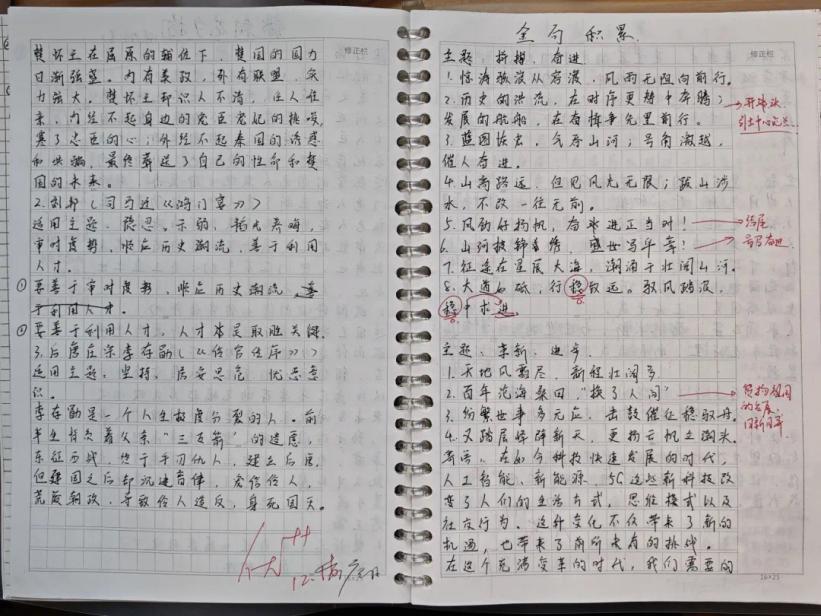 楚怀王在屈原的辅佐下，楚国的国力
日渐强盛。内有美政，外有联盟，实
力强大。楚怀王却识人不清，任人唯
亲，内经不起身边的佞臣宠妃的挑唆，
寒了忠臣的心；外经不起秦国的诱惑
和欺骗，最终葬送了自己的性命和楚
国的未来。
2.刘邦（司马迁《鸿门宴》）
适用主题：隐忍、示弱，韬光养晦，
审时度势，顺应历史潮流，善于利用
人才。
①要善于审时度势，顺应历史潮流，善
于利用人才。
②要善于利用人才，人才本是取胜关键。
3.后唐庄宗李存勖（《伶官传序》）
适用主题：坚持，居安思危，忧患意
识。
李存勖是一个人生极度分裂的人。前
半生背负着父亲"三支箭"的遗愿，
东征西战，终于手刃仇人，建立后唐，
但建国之后却沉迷音律，宠信伶人，
荒废朝政，导致伶人造反，身死国灭。
修正栏
金句积累
主题：拼搏，奋进
修正栏
1.惊涛骇浪从容渡，风雨无阻向前行。
2.历史的洪流，在时序更替中奔腾；
→开战头
引出中心论点
发展的航船，在奋楫争先里前行。
3.蓝图恢宏，气吞山河；号角激越，
催人奋进。
4.山高路远，但见风光无限；跋山涉
水，不改一往无前。
5.风劲好扬帆，奋进正当时！
→结尾
6.山河披锦绣，盛世写华章！
→号召奋进
7.征途在星辰大海，潮涌于壮阔山河。
8.大道如砥，行稳致远。驭风踏浪，
稳中求进。
主题：革新，进步
1.天地风霜尽，新程壮阔多
2.百年沧海桑田，"换了人间"
→赞扬祖国
的发展，
日新月异
3.纷繁世事多元应，击鼓催征稳驭舟。
4.又踏层峰辟新天，更扬云帆立潮头。
在如今科技快速发展的时代，
人工智能、新能源、5G这些新科技改
变了人们的生活方式，思维模式以及
社交行为。这种变化不仅带来了新的
机遇，也带来了前所未有的挑战。
在这个充满变革的时代，我们需要的
16×25